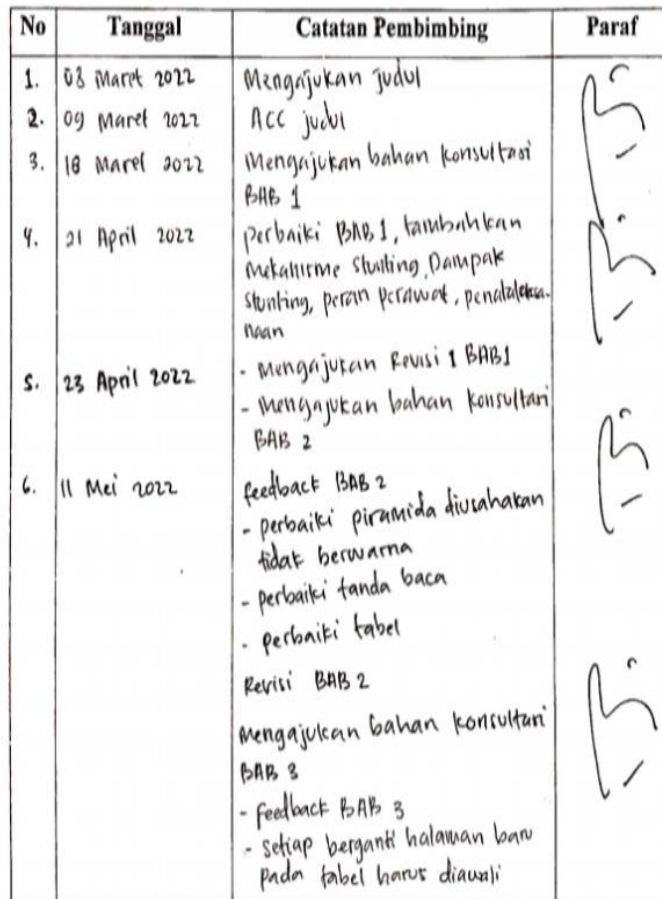 No Tanggal Catatan Pembimbing Paraf
1. 03 Maret 2022 Mengajukan judul
2. 09 Maret 2022 ACC judul
3. 18 Maret 2022 Mengajukan bahan konsultasi
BAB 1
4. 21 April 2022 perbaiki BAB 1, tambahkan
Mekanisme Stunting, Dampak
Stunting, peran perawat, penatalaksa-
naan
5. 23 April 2022 - Mengajukan Revisi 1 BAB 1
- Mengajukan bahan konsultasi
BAB 2
6. 11 Mei 2022 feedback BAB 2
- perbaiki piramida diusahakan
tidak berwarna
- perbaiki tanda baca
- perbaiki tabel
Revisi BAB 2
Mengajukan bahan konsultasi
BAB 3
- feedback BAB 3
- setiap berganti halaman baru
pada tabel harus diawali